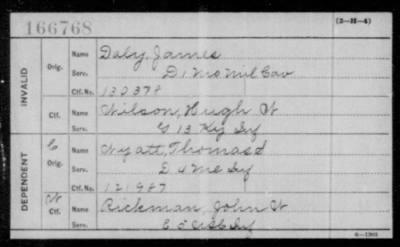 166768
(3-H-4)
INVALID
Orig.
Name Daby, James
Serv. D 1 Mo Mil Cav
Ctf. No. 130378
Ctf.
Name Wilson, Hugh W
Serv. G 13 Ky Inf
DEPENDENT
C
Orig.
Name Wyatt, Thomas d
Serv. D 4 Me Inf
Ctf. No. 121987
W
Ctf.
Name Rickman, John W
Serv. E 5 Inf
6—1301